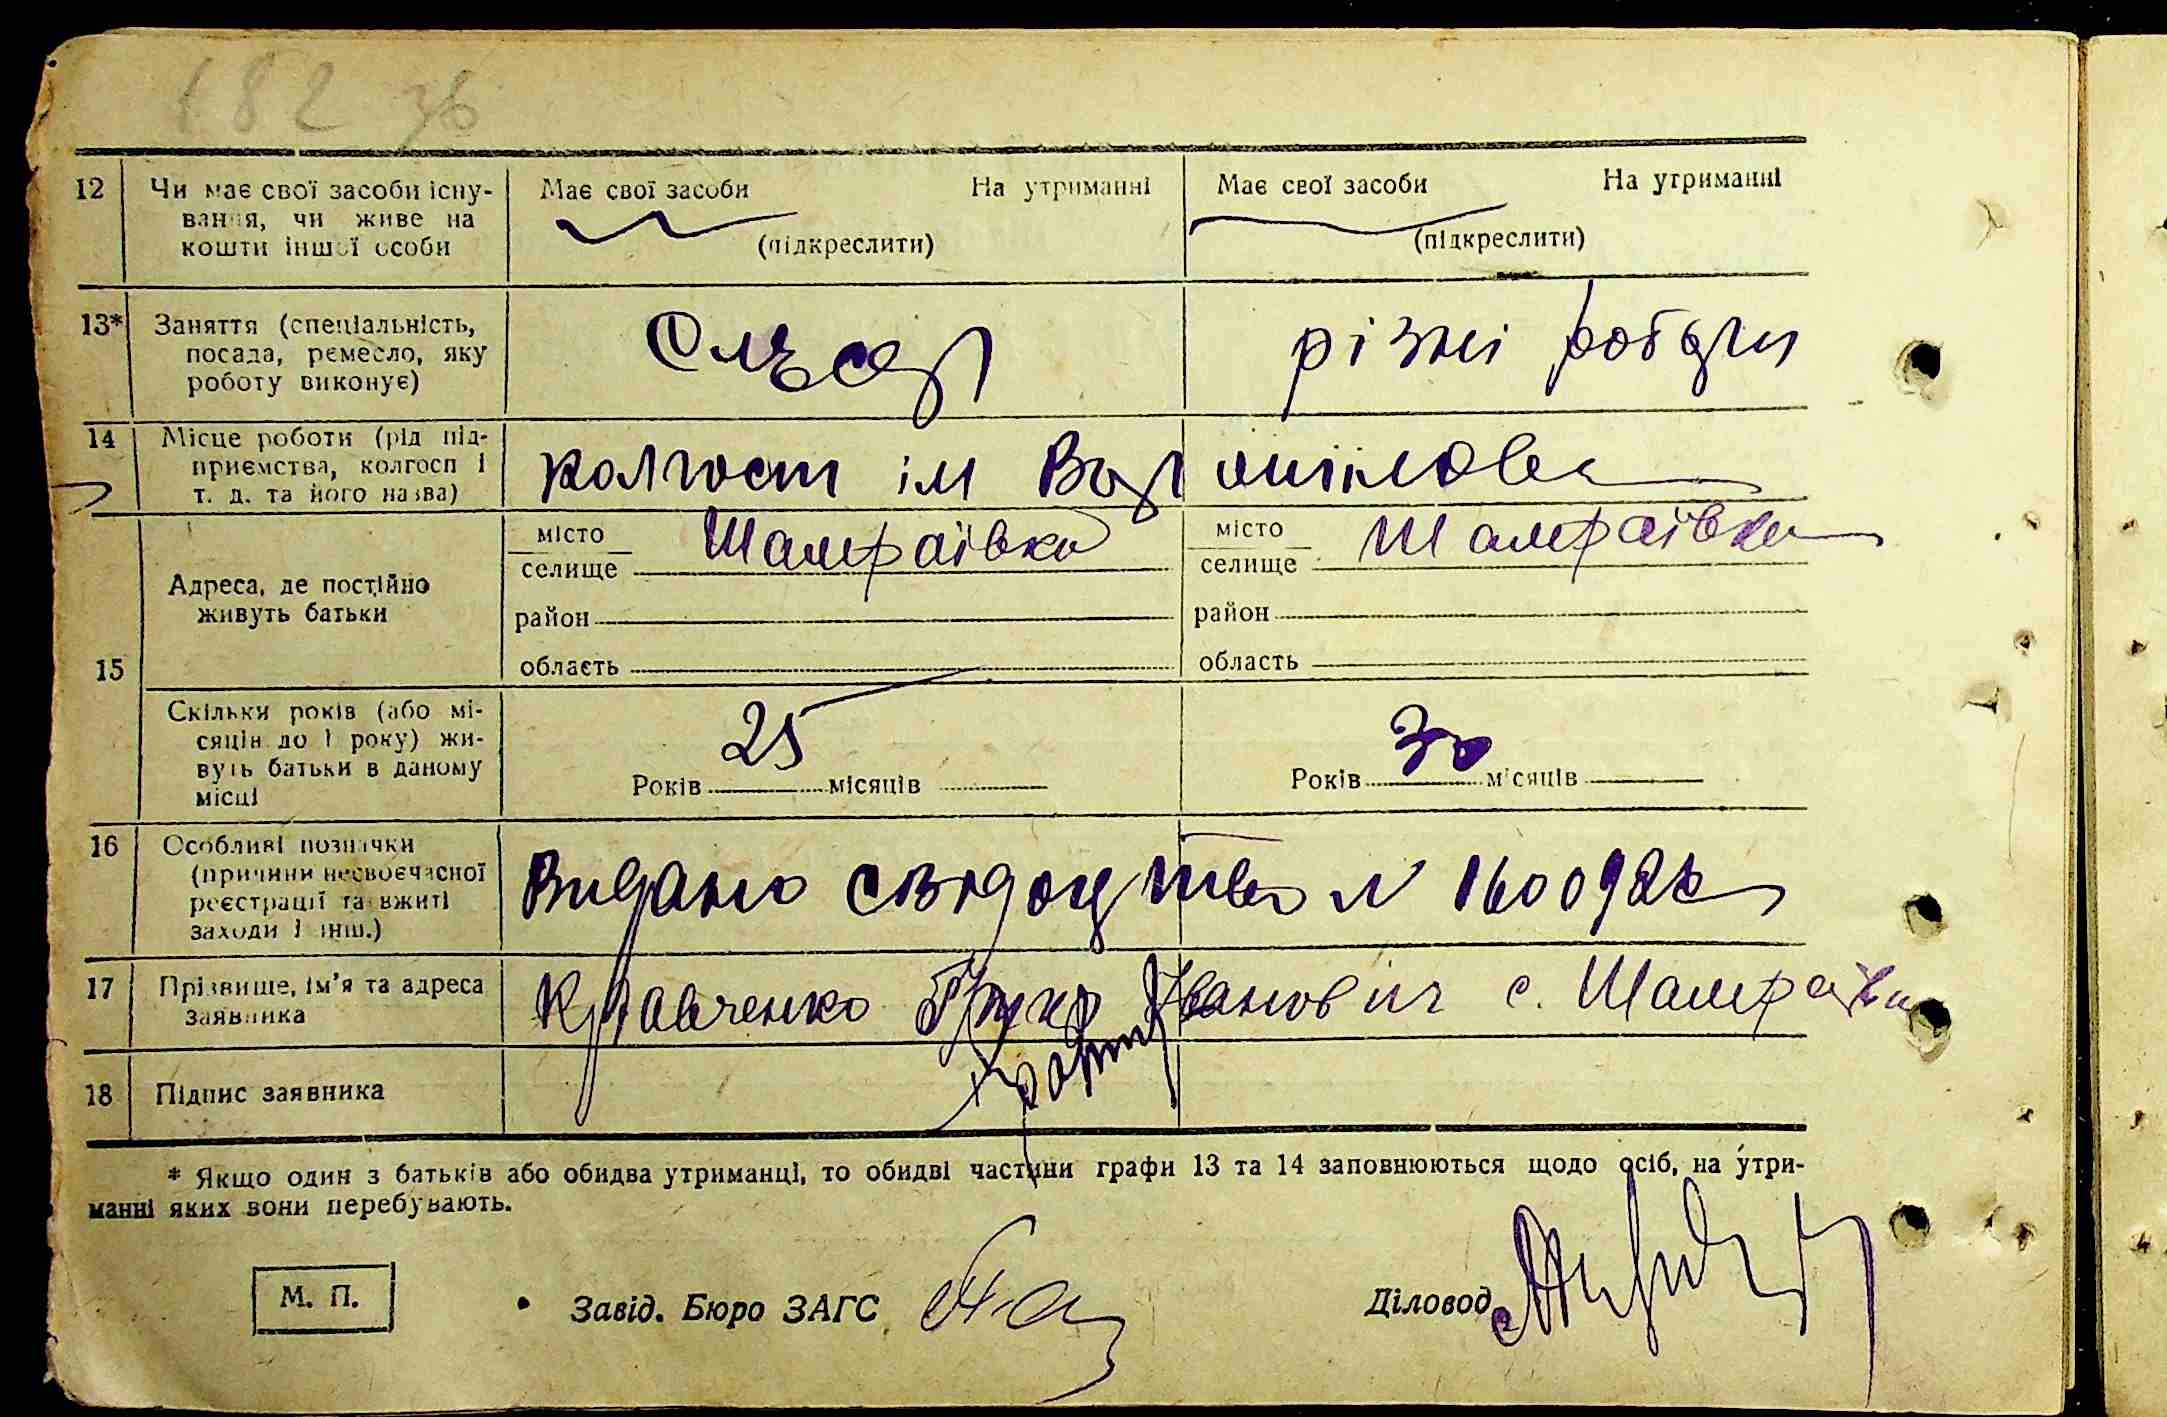 182 зв
12 Чи має свої засоби існу-
вання, чи живе на
кошти іншої особи
Має свої засоби На утриманні
(підкреслити)
Має свої засоби На утриманні
(підкреслити)
13* Заняття (спеціальність,
посада, ремесло, яку
роботу виконує)
різні роботи
14 Місце роботи (рід під-
приємства, колгосп і
т. д. та його назва)
колгосп ім Ворошилова
15 Адреса, де постійно
живуть батьки
місто
селище Шамраївка
район
область
місто
селище Шамраївка
район
область
Скільки років (або мі-
сяців до 1 року) жи-
вуть батьки в даному
місці
Років 25 місяців
Років 30 місяців
16 Особливі позначки
(причини несвоєчасної
реєстрації та вжиті
заходи і інш.)
Видано свідоцтво №
17 Прізвище, ім'я та адреса
заявника
Кравченко Іванович с. Шамраївка
18 Підпис заявника
* Якщо один з батьків або обидва утриманці, то обидві частини графи 13 та 14 заповнюються щодо осіб, на утри-
манні яких вони перебувають.
М. П.
Завід. Бюро ЗАГС
Діловод